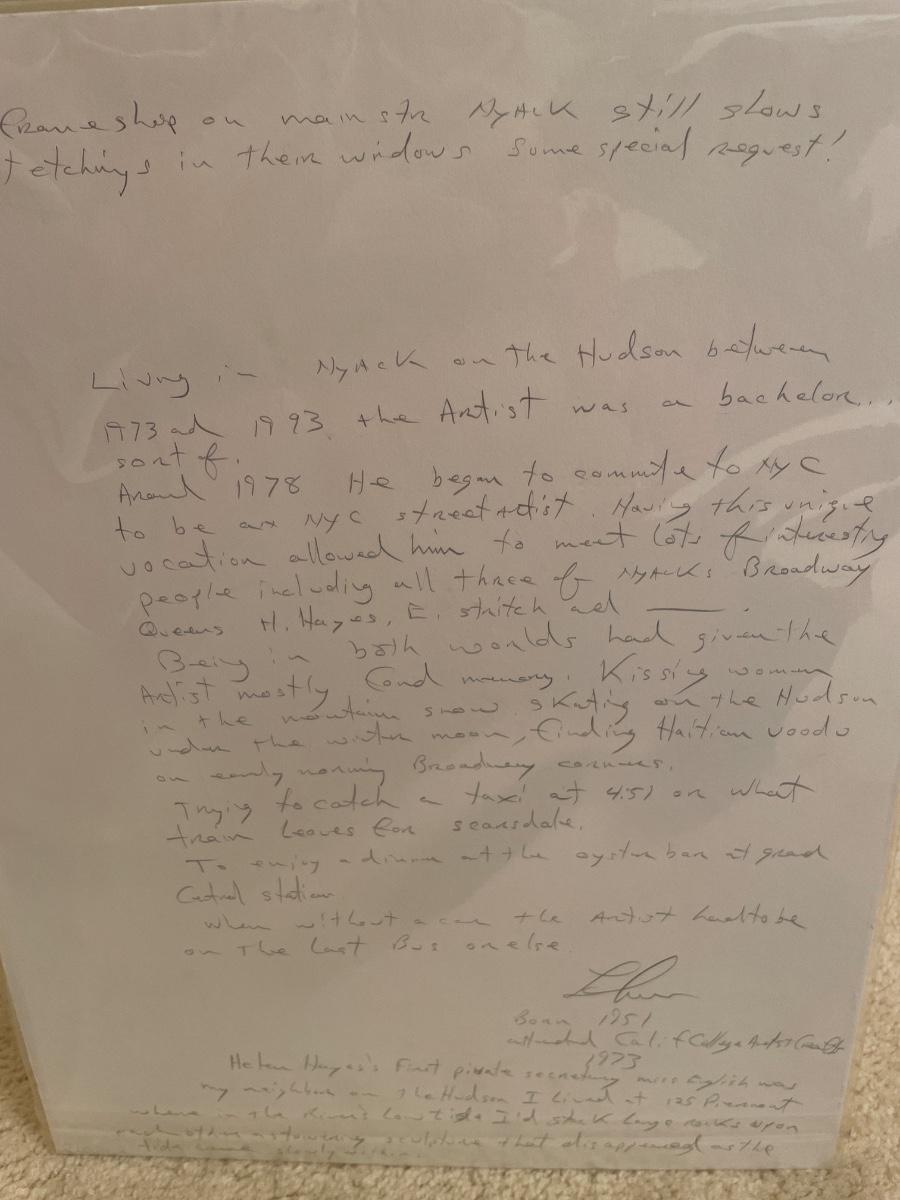 Frameshop on main str NYACK still shows
etchings in their windows some special request!
Living in NYACK on the Hudson between
1973 ad 1993 the Artist was a bachelor...
sort of.
Around 1978 He began to commute to NYC
to be an NYC street Artist. Having this unique
vocation allowed him to meet lots of interesting
people including all three of NYACKs Broadway
Queens H. Hayes, E. stritch ad ——— .
Being in both worlds had given the
Artist mostly fond memory. Kissing women
in the mountain snow skating on the Hudson
under the winter moon, finding Haitian voodo
on early morning Broadway corners.
Trying to catch a taxi at 4:51 or what
train leaves for scarsdale.
To enjoy a dinner at the oyster bar at grand
Central station
When without a car the Artist had to be
on The Last Bus or else.
Born 1951
attended Calif College Arts+Crafts
1973
Helen Hayes's First private secretary miss English was
my neighbor on the Hudson I Lived at 125 Piermont
where in the Rivers Low tide I'd stack Large rocks upon
each other a towering sculpture that disappeared as the
tide came slowly